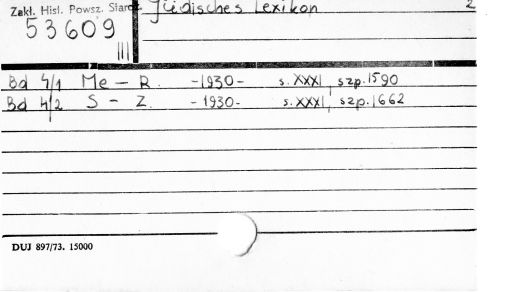 Zakł. Hist. Powsz. Staroż. Jüdisches Lexikon 2
53609
III
Bd 4/1 Me – R. -1930- s. XXXI, szp. 1590
Bd 4/2 S – Z. -1930- s. XXXI, szp. 1662
DUJ 897/73. 15000